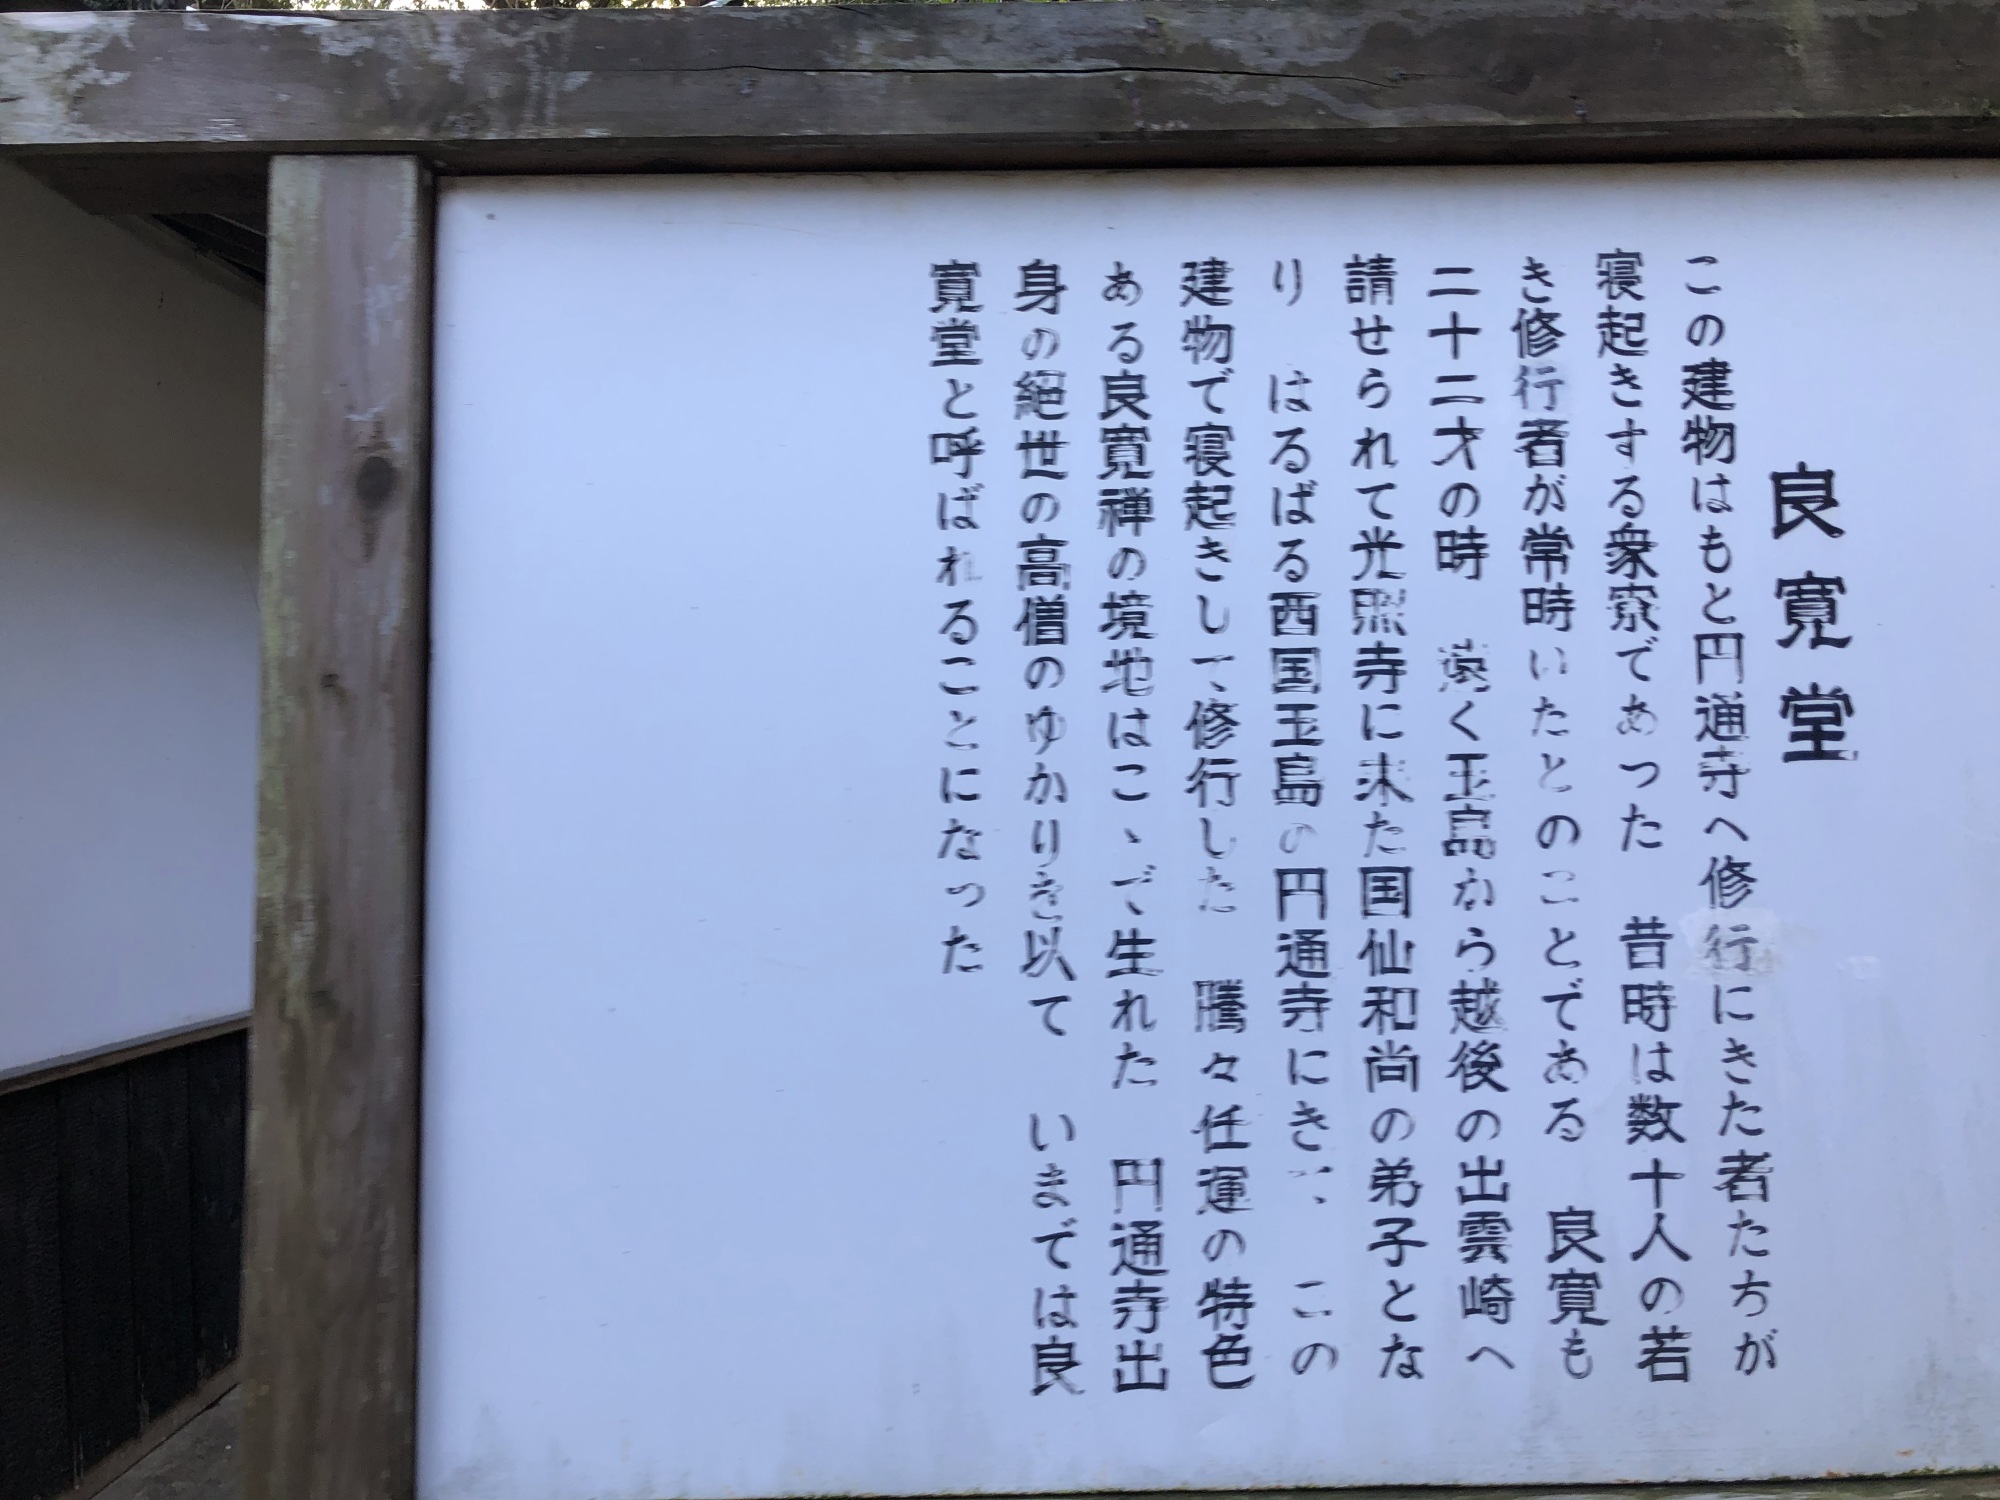 良寛堂
この建物はもと円通寺へ修行にきた者たちが
寝起きする衆寮であった　昔時は数十人の若
き修行者が常時いたとのことである　良寛も
二十二才の時　遠く玉島から越後の出雲崎へ
請せられて光照寺に来た国仙和尚の弟子とな
り　はるばる西国玉島の円通寺にきて、　この
建物で寝起きして修行した　騰々任運の特色
ある良寛禅の境地はこゝで生れた　円通寺出
身の絶世の高僧のゆかりを以て　いまでは良
寛堂と呼ばれることになった